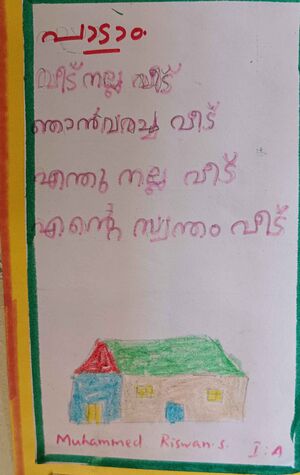 പാടാം
വീട് നല്ല വീട്
ഞാൻവരച്ച വീട്
എന്തു നല്ല വീട്
എന്റെ സ്വന്തം വീട്
Muhammed Riswan.s. I:A